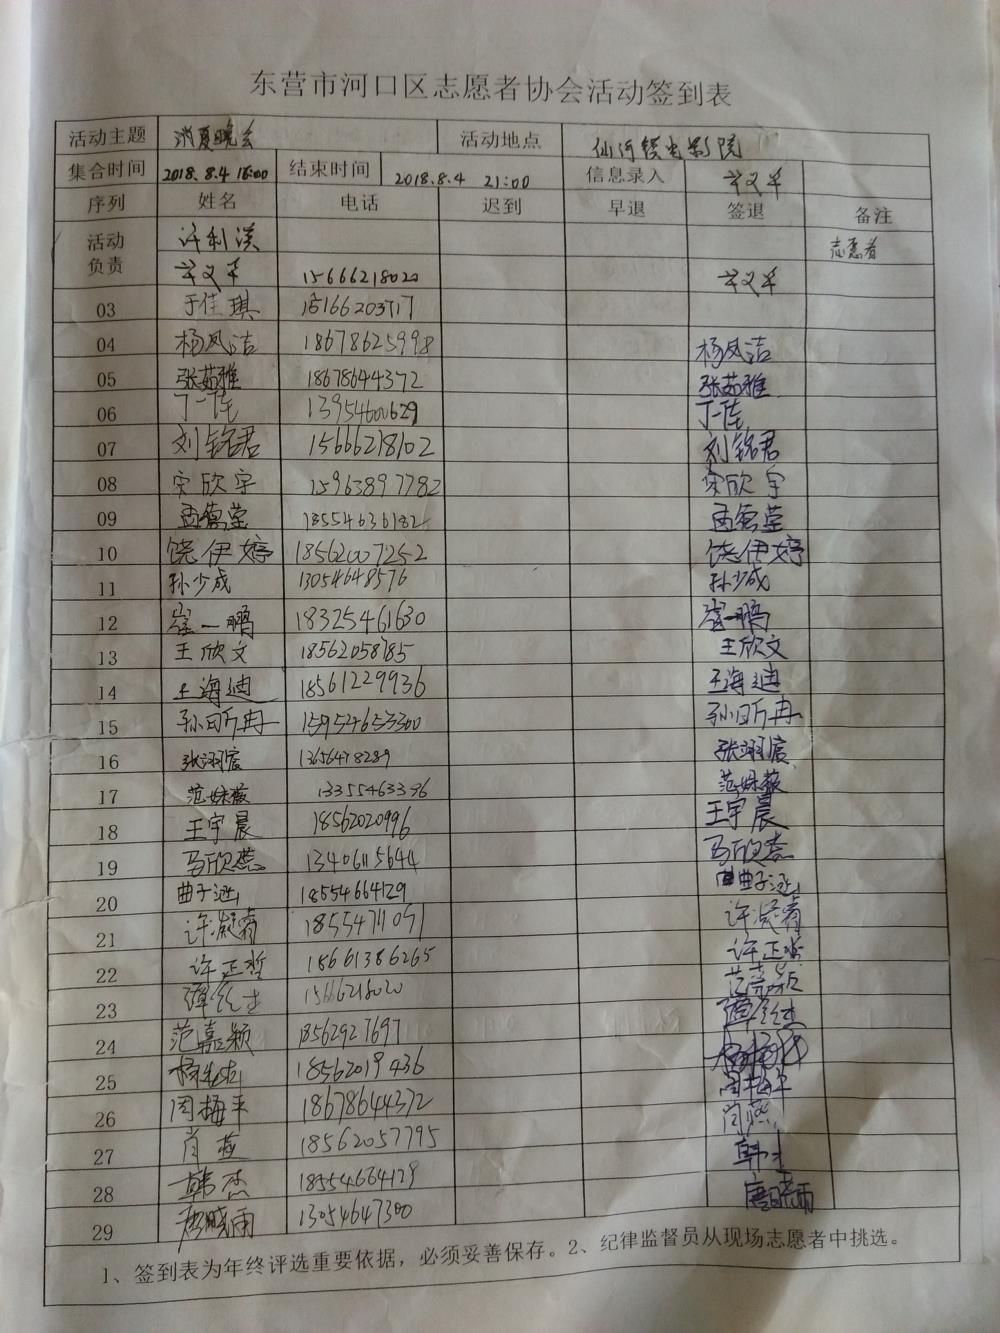 东营市河口区志愿者协会活动签到表
活动主题 消夏晚会 活动地点 仙河镇电影院
集合时间 2018.8.4 18:00 结束时间 2018.8.4 21:00 信息录入
序列 姓名 电话 迟到 早退 签退 备注
活动负责 许利滨 志愿者
15666218020
03 于佳琪 15166203717
04 杨凤洁 18678625998 杨凤洁
05 张茹雅 18678644372 张茹雅
06 丁一佳 13954600629 丁一佳
07 刘铭君 15666218102 刘铭君
08 宋欣宇 15963897782 宋欣宇
09 孟德莹 18554636182 孟德莹
10 饶伊婷 18562007252 饶伊婷
11 孙少成 13054648576 孙少成
12 崔一鹏 18325461630 崔一鹏
13 王欣文 18562058785 王欣文
14 王海迪 18561229936 王海迪
15 孙昕冉 159524653300 孙昕冉
16 张翊宸 13656478289 张翊宸
17 范姝薇 13355463336 范姝薇
18 王宇晨 18562020996 王宇晨
19 马欣蕊 13406115644 马欣蕊
20 曲子涵 18554664129 曲子涵
21 许凝睿 18554711051 许凝睿
22 许正哲 18661386265 许正哲
23 15666218020 范嘉颖
24 范嘉颖 18562927697
25 18562019436
26 周梅平 18678644372 周梅平
27 肖燕 18562057795 肖燕
28 韩杰 18554664129 韩杰
29 唐晓雨 13054647300 唐晓雨
1、签到表为年终评选重要依据，必须妥善保存。2、纪律监督员从现场志愿者中挑选。